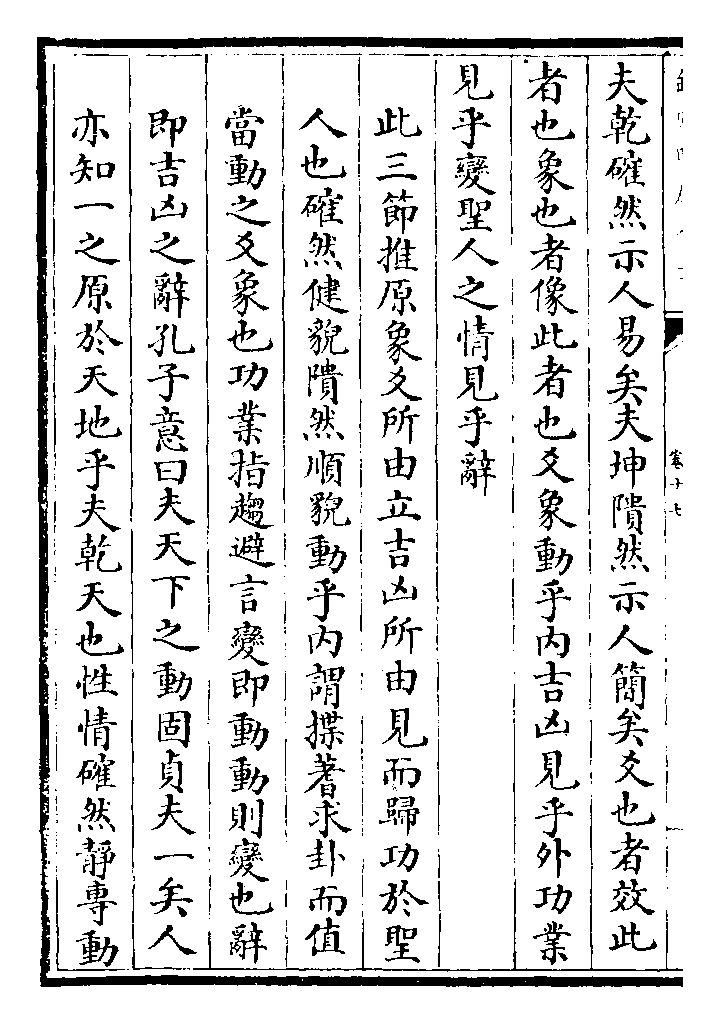 夫乾確然示人易矣夫坤隤然示人簡矣爻也者效此
者也象也者像此者也爻象動乎内吉凶見乎外功業
見乎變聖人之情見乎辭
此三節推原象爻所由立吉凶所由見而歸功於聖
人也確然健貌隤然順貌動乎内謂揲蓍求卦而值
當動之爻象也功業指趨避言變即動動則變也辭
即吉凶之辭孔子意曰夫天下之動固貞夫一矣人
亦知一之原於天地乎夫乾天也性情確然靜專動
卷十七